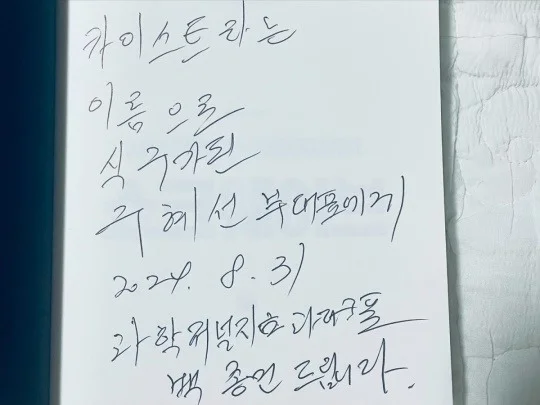 카이스트라는
이름으로
식구가된
구혜선 부대표에게
2024. 8. 31
과학저널지
백종민 드립니다.